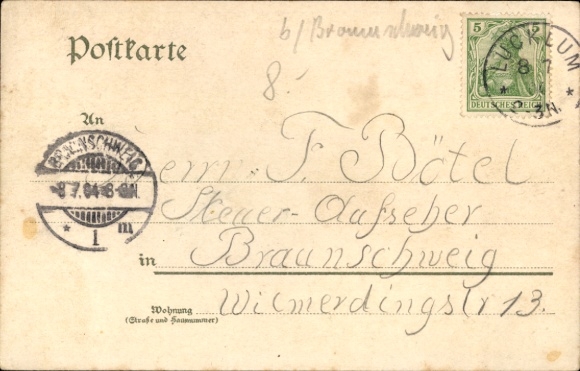 b/ Braunschweig
Postkarte
5
DEUTSCHES REICH
LUCKLUM
8 7
2-3N.
8.
An
BRAUNSCHWEIG
8.7.04.8-9N.
1 m
Herrn F. Bötel
Steuer-Aufseher
in Braunschweig
Wohnung Wilmerdingstr 13.
(Straße und Hausnummer)